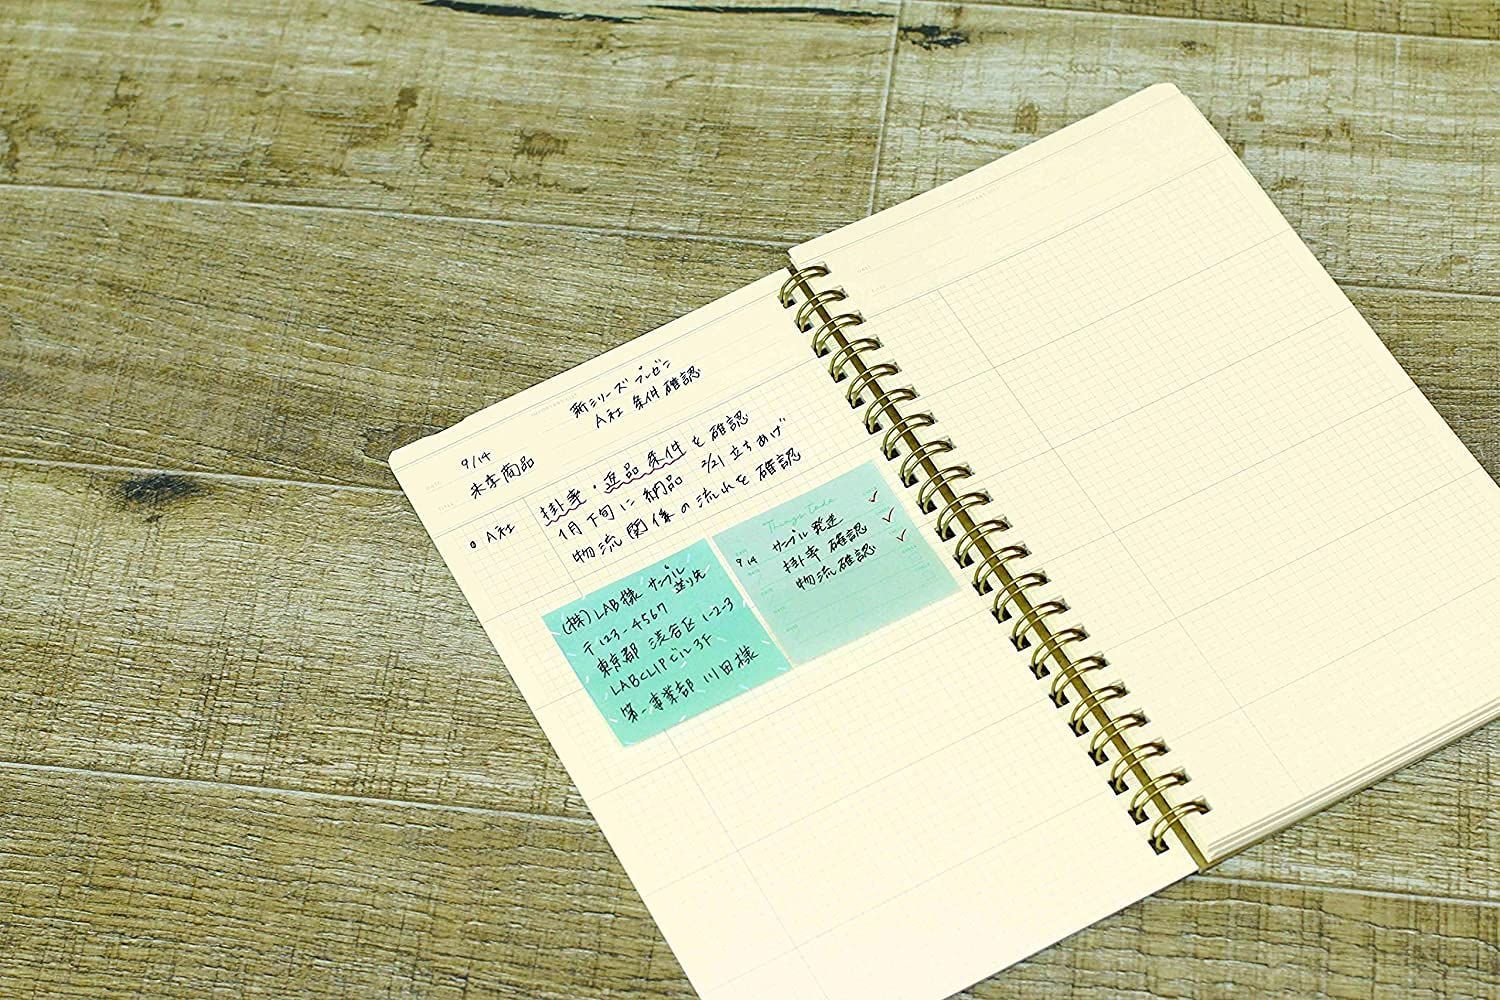 新シリーズ プレゼン
A社 条件確認
9/14
未享商品
A社
掛率・返品条件を確認
1月下旬に納品 2/21 立ちあげ
物流関係の流れを確認
(株)LAB様 サンプル送り先
〒123-4567
東京都 渋谷区 1-2-3
LABCLIPビル 3F
第一事業部 川田様
Things to do
9/14 サンプル発送
掛率 確認
物流確認